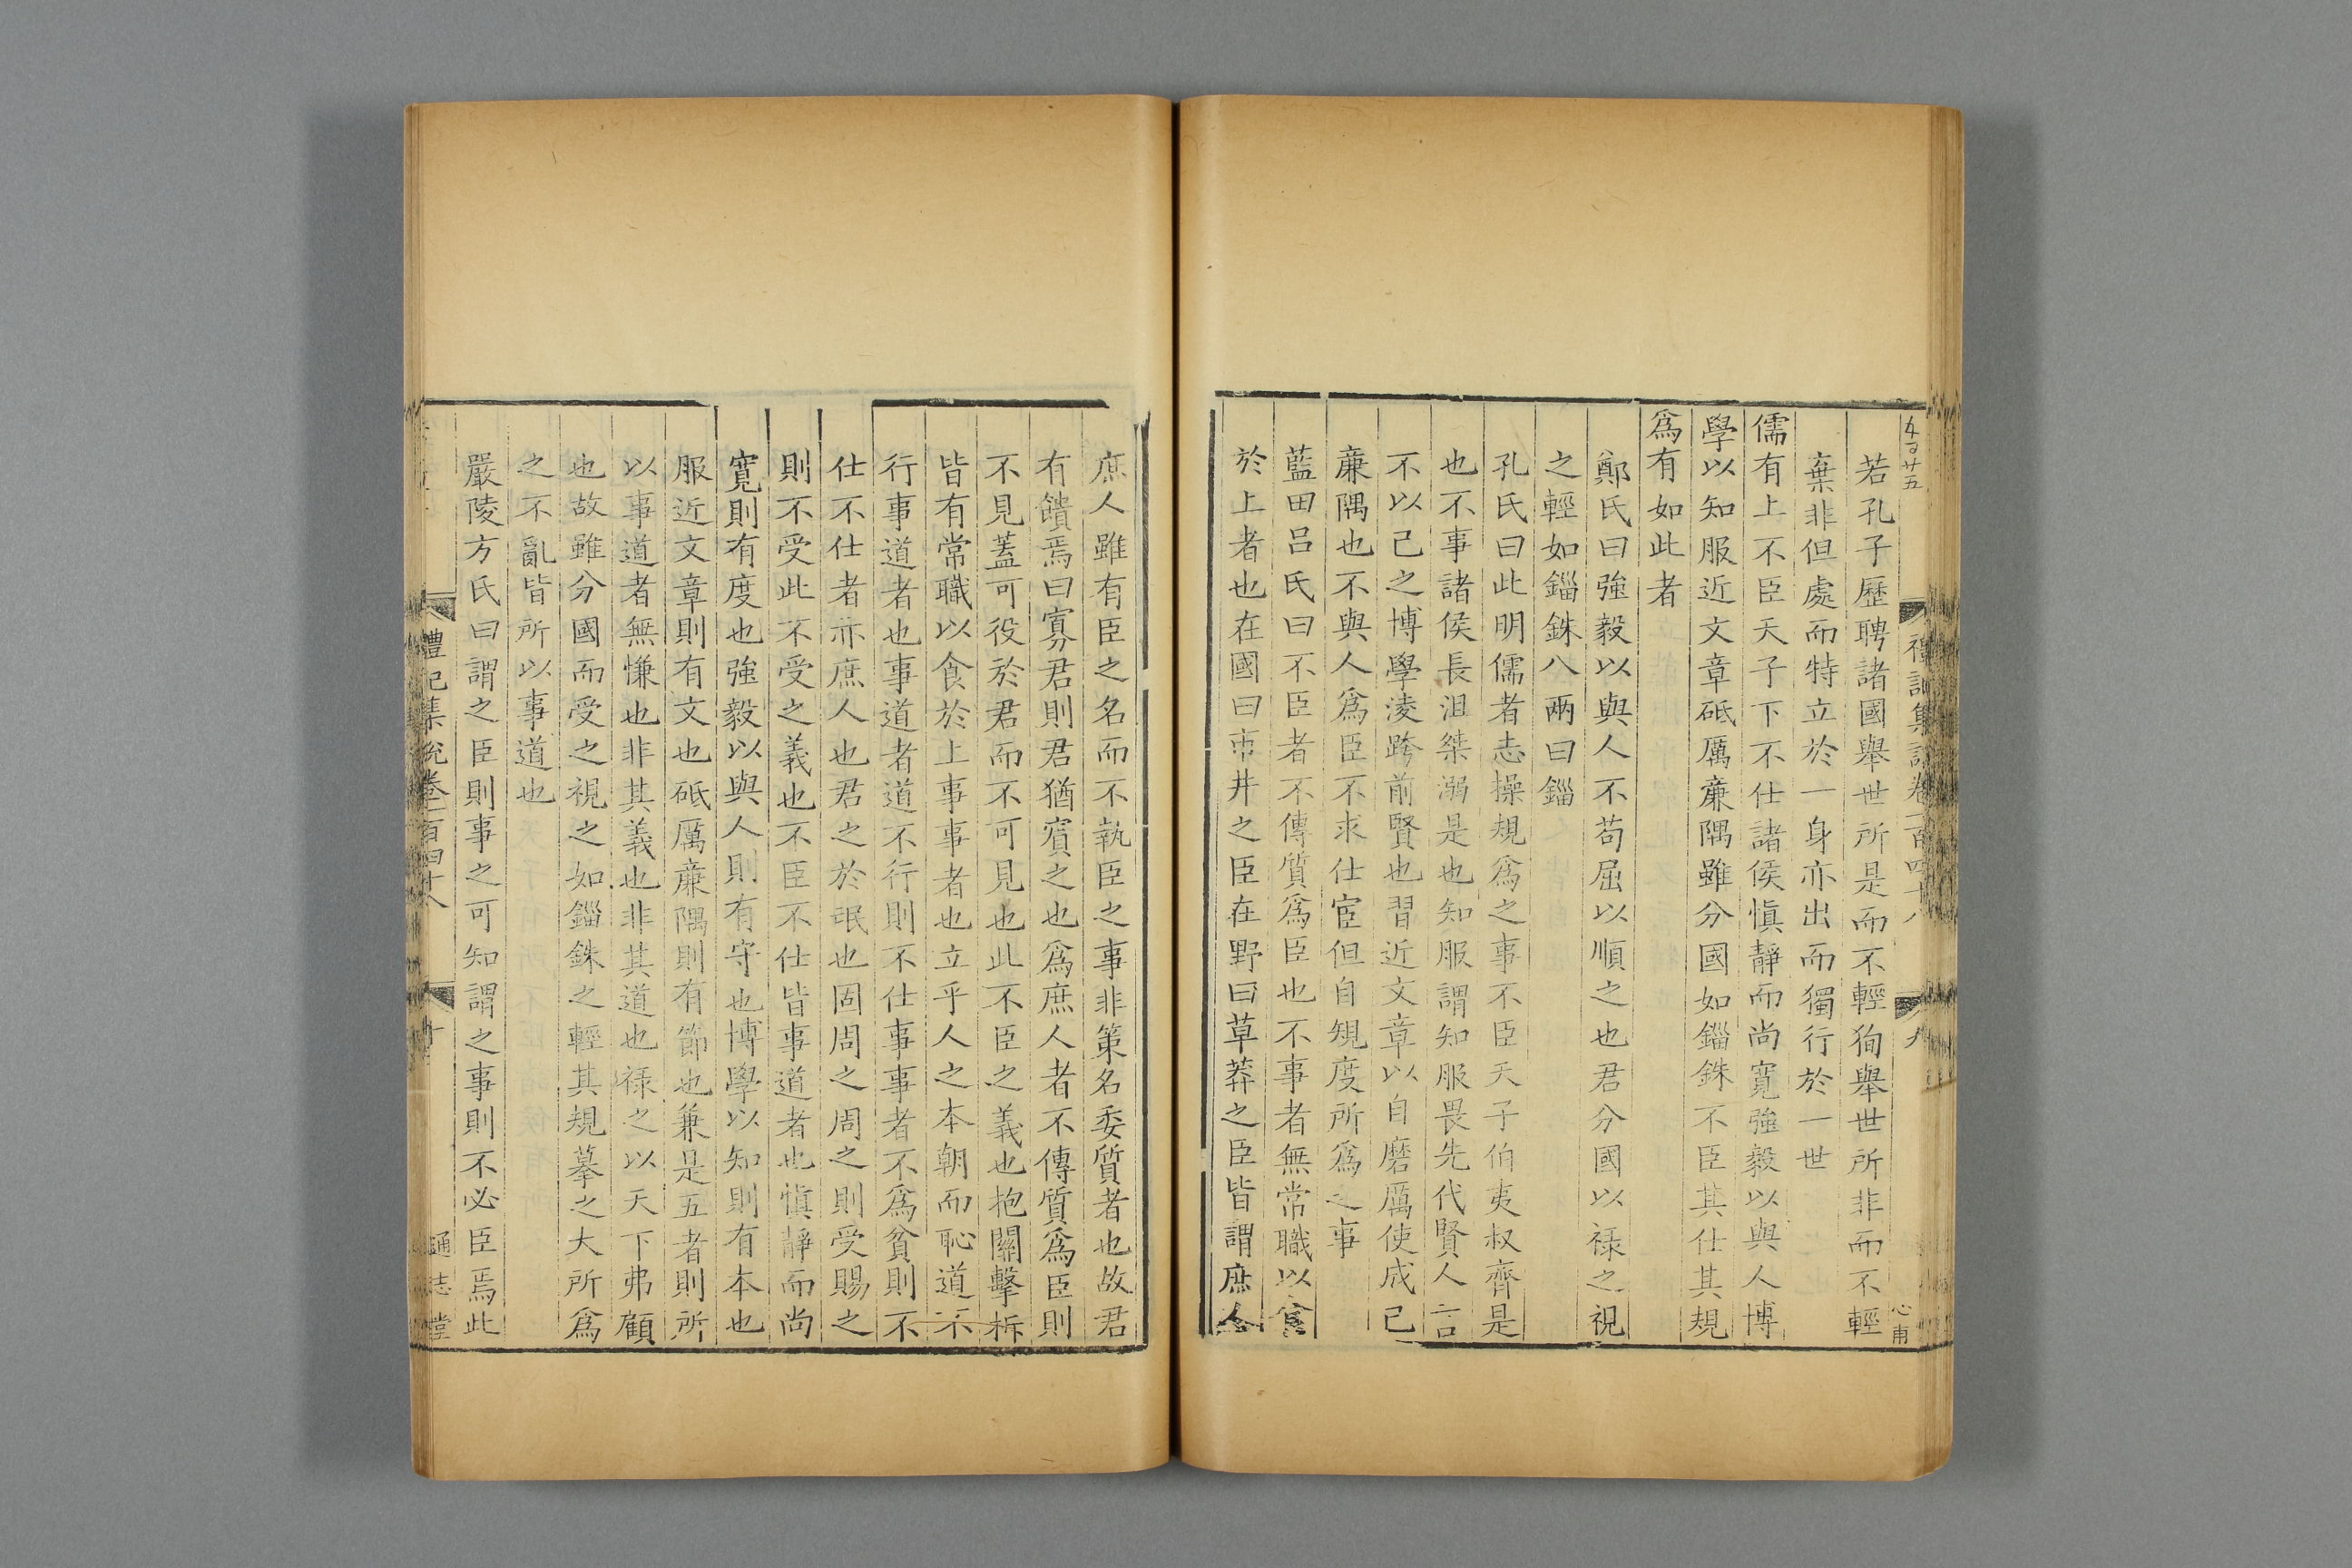 若孔子歷聘諸國舉世所是而不輕狥舉世所非而不輕
棄非但處而特立於一身亦出而獨行於一世
儒有上不臣天子下不仕諸侯慎靜而尚寬強毅以與人博
學以知服近文章砥厲廉隅雖分國如錙銖不臣其仕其規
爲有如此者
鄭氏曰強毅以與人不苟屈以順之也君分國以祿之視
之輕如錙銖八兩曰錙
孔氏曰此明儒者志操規爲之事不臣天子伯夷叔齊是
也不事諸侯長沮桀溺是也知服謂知服畏先代賢人言
不以己之博學淩跨前賢也習近文章以自磨厲使成己
廉隅也不與人爲臣不求仕宦但自規度所爲之事
藍田呂氏曰不臣者不傳質爲臣也不事者無常職以食
於上者也在國曰市井之臣在野曰草莽之臣皆謂庶人
庶人雖有臣之名而不執臣之事非策名委質者也故君
有饋焉曰寡君則君猶賓之也爲庶人者不傳質爲臣則
不見蓋可役於君而不可見也此不臣之義也抱關擊柝
皆有常職以食於上事事者也立乎人之本朝而恥道不
行事道者也事道者道不行則不仕事事者不爲貧則不
仕不仕者亦庶人也君之於氓也固周之周之則受賜之
則不受此不受之義也不臣不仕皆事道者也慎靜而尚
寬則有度也強毅以與人則有守也博學以知則有本也
服近文章則有文也砥厲廉隅則有節也兼是五者則所
以事道者無慊也非其義也非其道也祿之以天下弗顧
也故雖分國而受之視之如錙銖之輕其規摹之大所爲
之不亂皆所以事道也
嚴陵方氏曰謂之臣則事之可知謂之事則不必臣焉此
禮記集說卷一百四十八 十 通志堂